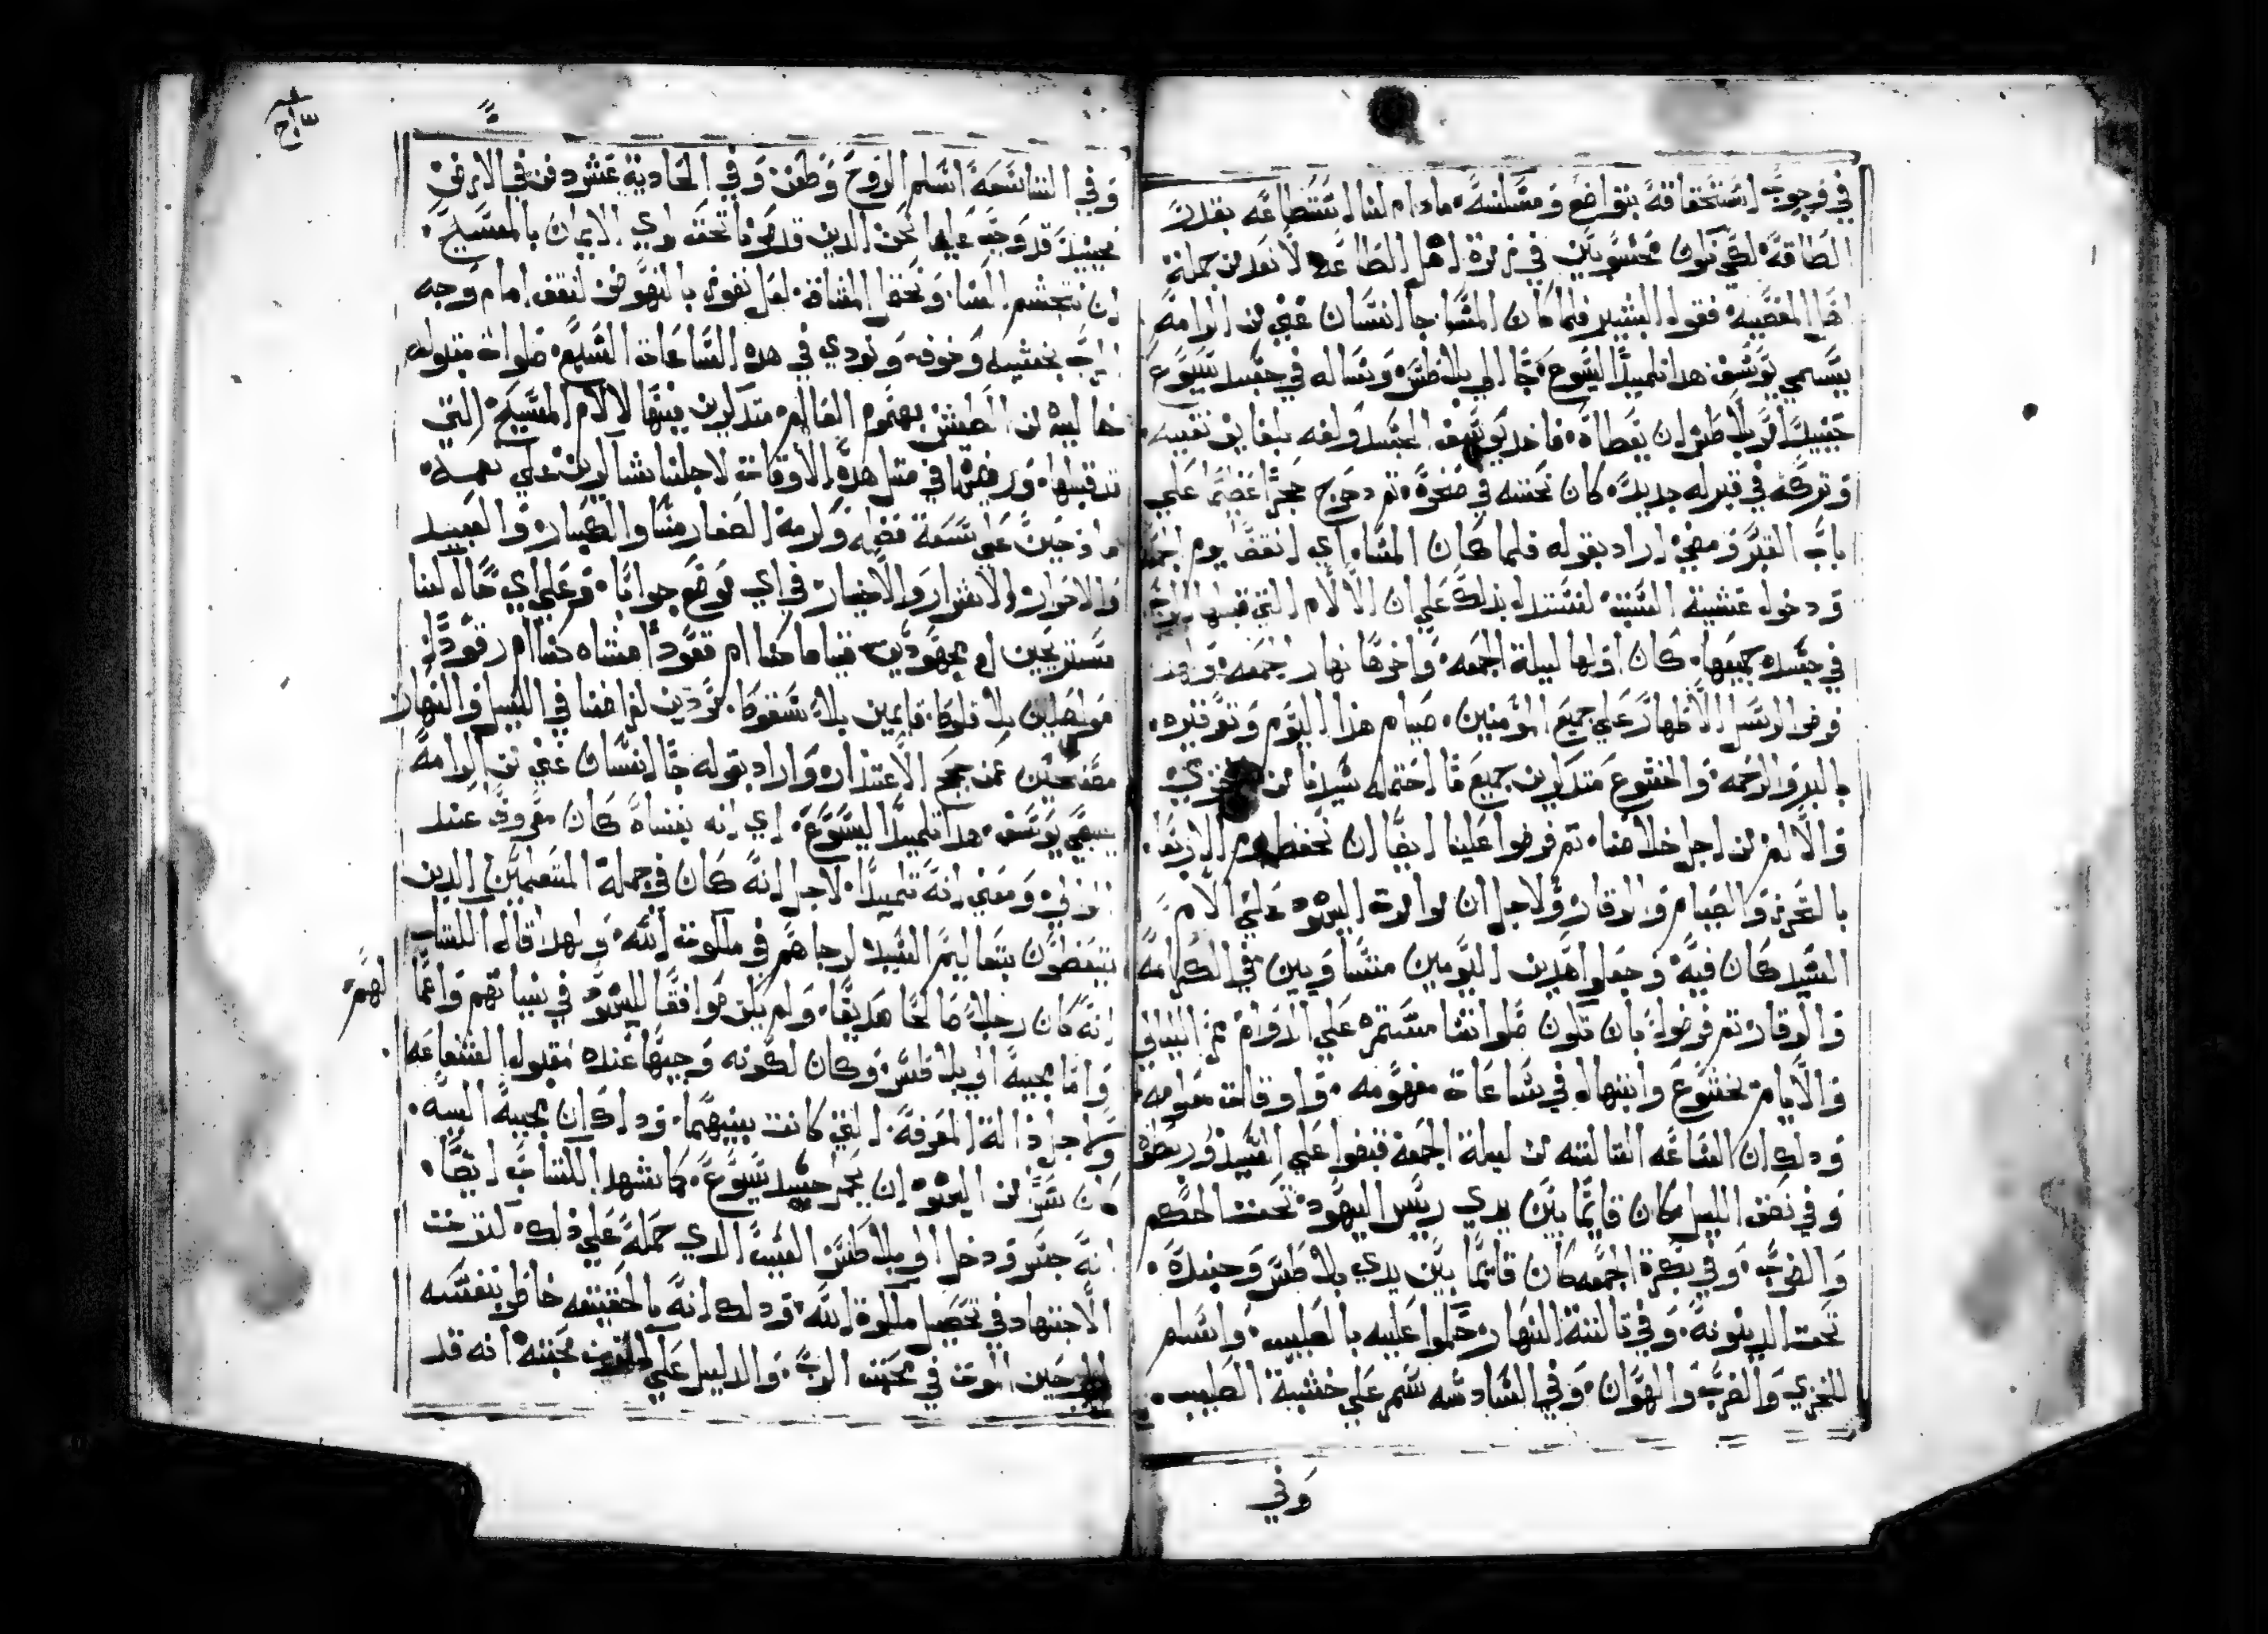 في وجوب استحقاقة بتواضع ومسكنة، مادام لنا استطاعه بقدر
الطاقة لكي نكون محسوبين في زمرة اهل الطاعه لا نعد من جملة
اهل المعصية، فقول البشير فلما كان المسا جا انسان غني من الرامه
يسمي يوسف هدا تلميدا ليسوع، جا الي بلاطس وساله في جسد يسوع
حينيد امر بلاطس ان يعطاه، فاخد يوسف الجسد ولفه بلفايف نقيه،
وتركه في قبر له جديد، كان نحته في صخرة، تم دحرج حجرا عظيما علي
باب القبر ومضي، اراد بقوله فلما كان المسا، اي انقضا يوم الجمعة
ودخول عشية السبت لنستدل بدلك علي ان الالام التي قبلها الرب
في جسده جميعها، كان اولها ليلة الجمعه، واخرها نهار الجمعه، ولهدا
فرضوا الرسل الاطهار علي جميع المومنين، صيام هدا اليوم وتوقيره،
بالبر والرحمه، والخشوع متدكرين جميع ما احتمله سيدنا من الخزي
والالم من اجل خلاصنا، تم فرضوا علينا ايضا ان نحفظ يوم الاربعا،
بالتحرز والصيام والوقار، ولاجل ان موامرة اليهود علي الام
السيد كان فيه، وجعلوا هدين اليومين متساويين في الكرامة
والوقار، تم فرضوا بان تكون صلواتنا مستمره علي الدوام مر الليالي
والايام، بخشوع وابتهال في ساعات مفهومه، واوقات معلومه،
ودلك ان الساعه التالته من ليلة الجمعة قبضوا علي السيد وربطوه
وفي نصف الليل كان قايما بين يدي رييس اليهود، تحت الحكم
والضرب، وفي بكرة الجمعه كان قايما بين يدي بلاطس وجنده،
تحت الدينونة، وفي تالتة النهار، حكموا عليه بالصليب، واسلم
للخزي والضرب والهوان، وفي السادسه سمر علي خشبة الصليب،
وفي
وفي التاسعة اسلم الروح وطعن وفي الحادية عشر دفن في الارض
فحينيد قد وجب علينا نحن الدين قد صرنا تحت لواي الايمان بالمسيح،
ان نتجشم العنا، ونحتمل المشاق، لعل نفوز بالنهوض لنقف امام وجه
الرب بخشيه وخوف، ونودي في هده الساعات السبع، صلوات مقبوله
خاليه من الطيش بهموم العالم، متدكرين فيها لالام المسيح، التي
قد قبلها، ورضيها في متل هده الاوقات لاجلنا شاكرين علي نعمه
مواضبين علي تسعة عظه ولازمة الصغار منا والكبار، والعبيد
والاحرار، والاشرار والاخيار، في اي موضع جوانا، وعلي اي حال لنا
مستريحين ام مجهودين، قياما كنا ام قعودا، مشاه كنا ام رقودا،
مواصلين بلا فلوكا، قايمين بلا سقوكا، مودين لفرايضنا في الليل والنهار
مضحين عن حجج الاعتدار، واراد بقوله جا انسان غني من الرامة
يسمي يوسف، هدا تلميدا ليسوع، اي انه بغناه كان معروفا عند
الوالي، ومعني انه تلميدا، لاجل انه كان في جملة المتعلمين الدين
يتعضون بتعاليم السيد لرجاهم في ملكوت الله، ولهدا قال الكتاب لهم
انه كان رجلا صالحا صديقا، ولم يكن موافقا لليهود في نياتهم واعما
واما مجيه الي بلاطس، وكان لكونه وجيها عنده مقبول الشفاعه
ولاجل دالة المعرفة، التي كانت بينهما، ودلك ان مجيه اليه،
كان سرا من اليهود ان يمر جسد يسوع، كما شهد الكتاب ايضا،
انه جسر ودخل الي بلاطس، السبب الدي حمله علي دلك، لتوخت
الاجتهاد في تحصيل ملكوت الله، ودلك انه بالحقيقه خاطر بنفسه
الي حين الموت في محبت الرب، والدليل علي محبته انه قد